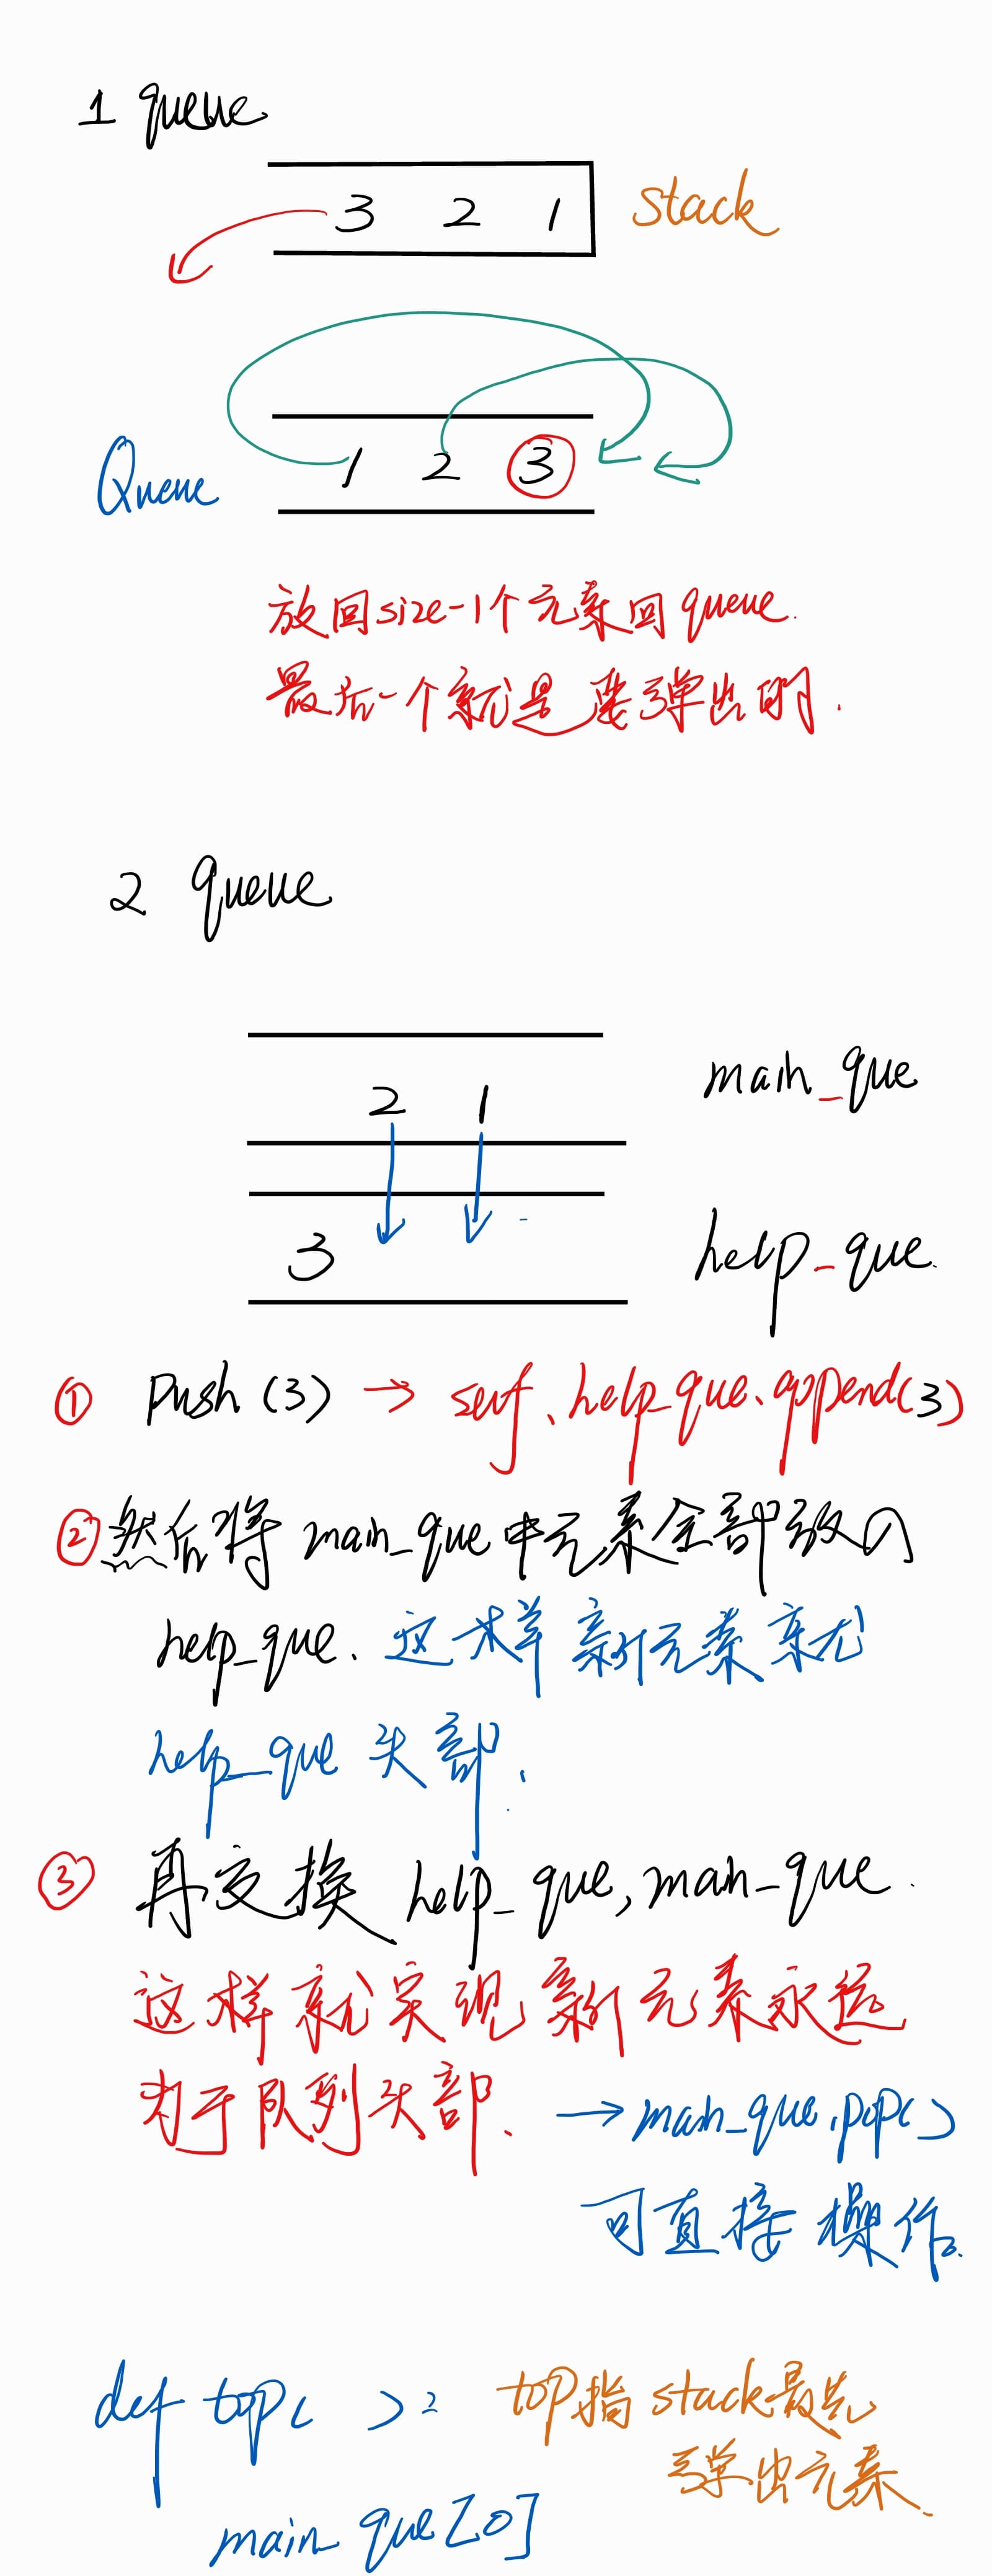 1 queue
3 2 1 stack
Queue 1 2 3
放回size-1个元素回queue.
最后一个就是要弹出的.
2 queue
2 1 main_que
3 help_que.
① Push (3) → self.help_que.append(3)
② 然后将 main_que 中元素全部放入
help_que. 这样新元素就
help_que 头部.
③ 再交换 help_que, main_que.
这样就实现新元素永远
为于队列头部. → main_que.pop()
可直接操作.
def top( ): top指stack最先
弹出元素.
main que[0]